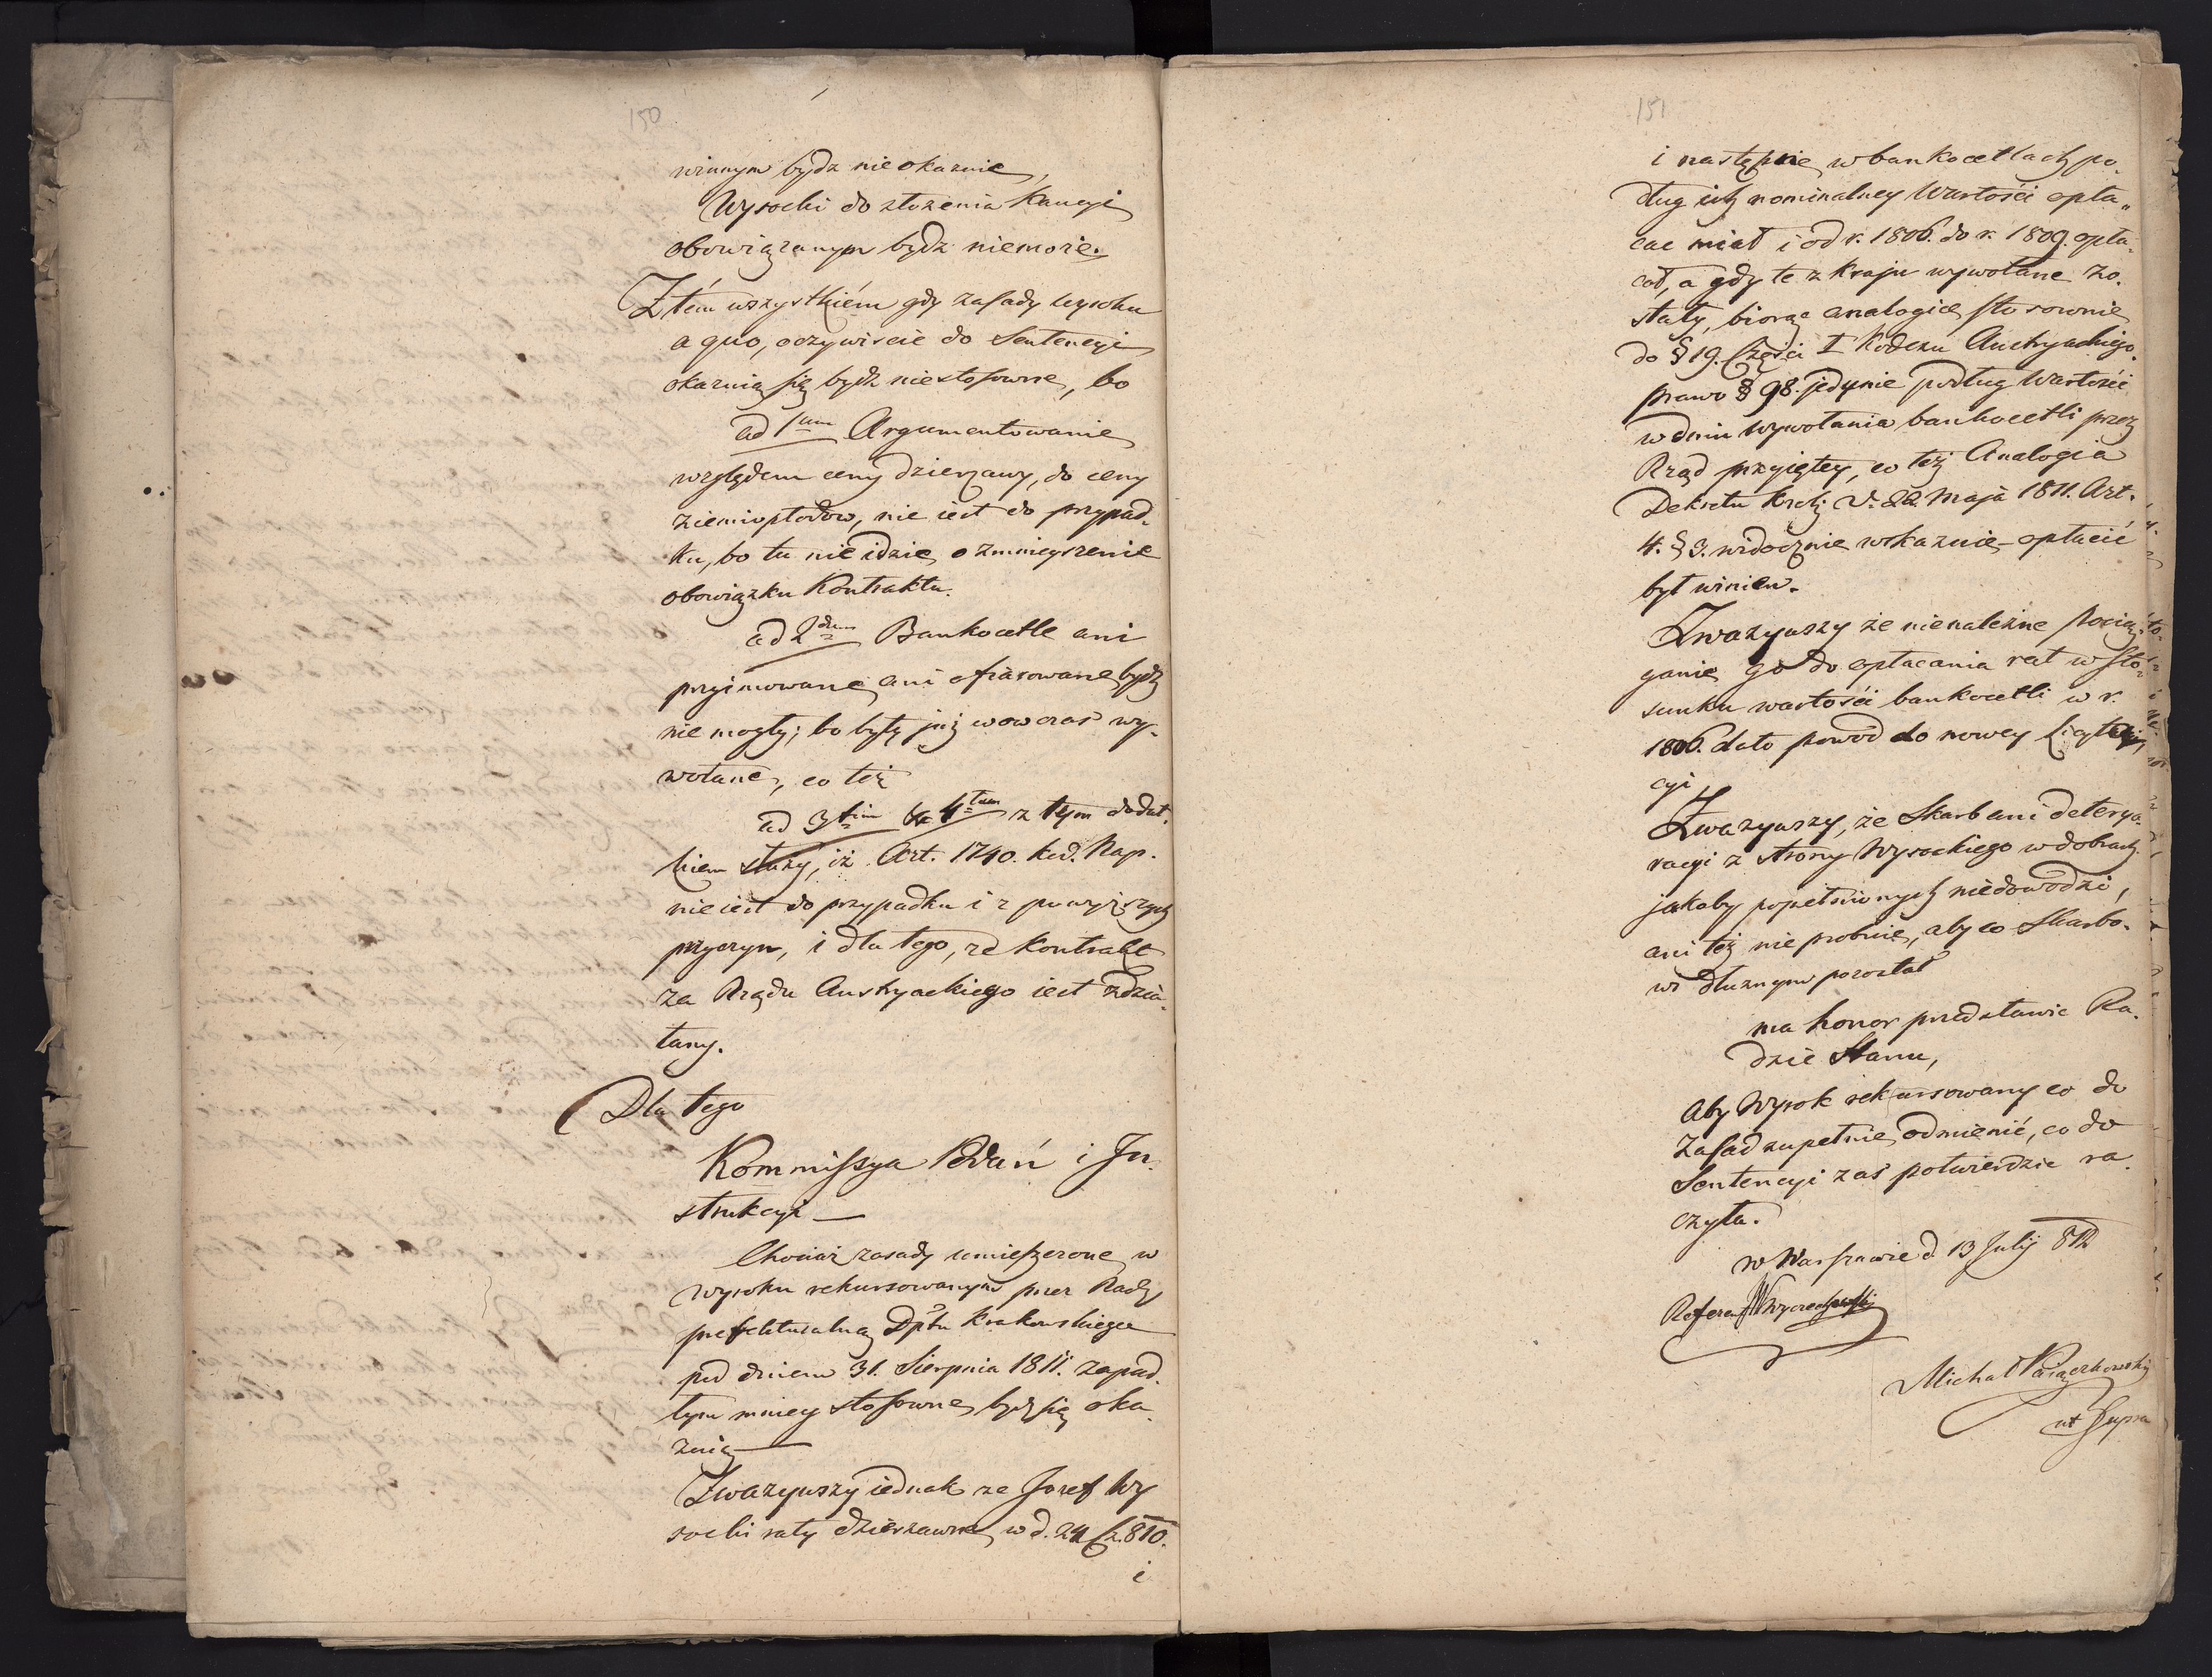 150
winnym bydz nie okaznie,
Wysocki do złożenia Kaucyi
obowiązanym bydz niemoże.
Z tém wszystkiém gdy zasady wyroku
a quo, oczywiscie do Sentencyi
okaznią się bydz niestosowne, bo
ad 1um Argumentowanie
względem ceny dzierzawy, do ceny
ziemiopłodow, nie iest do przypad-
ku, bo tu nie idzie o zmnieyszenie
obowiązku Kontraktu.
ad 2dum Bankocetle ani
przyimowane, ani ofiarowane bydz
nie mogły; bo były już wowczas wy-
wołane, co też
ad 3tium & 4tum z tym dodat-
kiem służy, iż Art. 1740. Kod. Nap.
nie iest do przypadku i z powyższych
przyczyn, i dla tego, ze Kontrakt
za Rządu Austryackiego iest zdzia-
łany.
Dla tego
Kommissya Podań i In-
strukcyi —
Chociaż zasady umieszczone w
wyroku rekursowanym przez Radę
prefekturalną Dptu Krakowskiego
pod dniem 31. Sierpnia 1811. zapad-
łym mniey stosowne bydz się oka-
znią —
Zwazywszy iednak ze Jozef Wy
socki raty dzierzawne w d. 24 Cz. 810.
i
151
i następnie w bankocetlach po-
dług ich nominalney Wartości opła-
cac miał i od r. 1806. do r. 1809. opła-
cał, a gdy te z Kraju wywołane zo-
stały, biorąc analogię stosownie
do § 19. Części I Kodexu Austryackiego.
prawo § 98. jedynie podług Wartości
w dniu wywołania bankocetli przez
Rząd przyiętey, co też Analogia
Dekretu Krolj: d. 22 Maja 1811. Art.
4. § 3. widocznie wskaznie opłacić
był winien.
Zwazywszy że nienależne pocią-
ganie go do opłacania rat w sto-
sunku wartości bankocetli w r.
1806. dało powod do nowey Licyta
cyi
Zwazywszy, że Skarb ani deteryo-
racyi z strony Wysockiego w dobrach
jakoby popełnionych niedowodzi,
ani też nie probuie, aby co Skarbo-
wi dłuznym pozostał
ma honor przedstawic Ra-
dzie Stanu,
Aby Wyrok rekursowany co do
Zasad zupełnie odmienić, co do
Sentencyi zaś potwierdzic ra-
czyła.
w Warszawie d. 13 Julij 812
Referent Wyczechowski
Michał
ut Supra